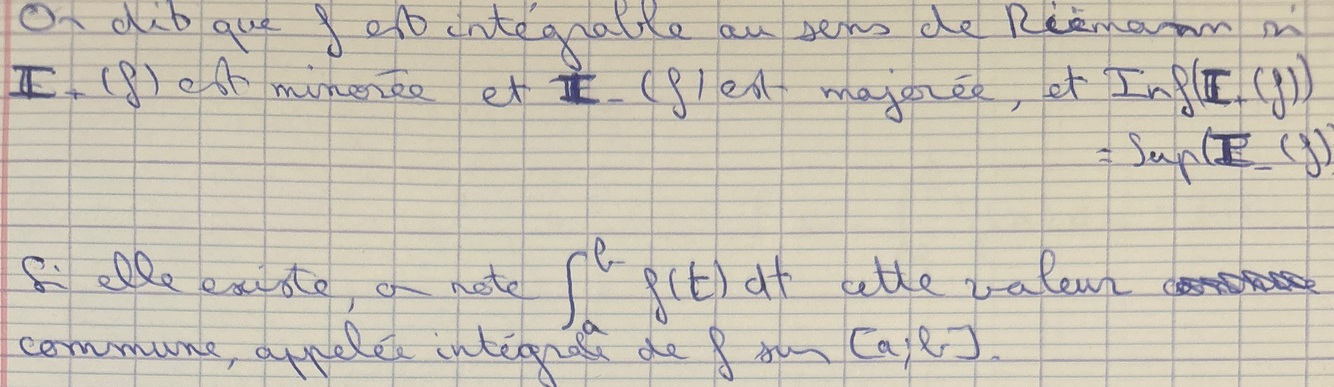 On dit que f est intégrable au sens de Riemann si
I₊(f) est minorée et I₋(f) est majorée, et Inf(I₊(f))
= Sup(I₋(f))
Si elle existe, on note ∫ₐᵇ f(t) dt cette valeur
commune, appelée intégrale de f sur [a;b].